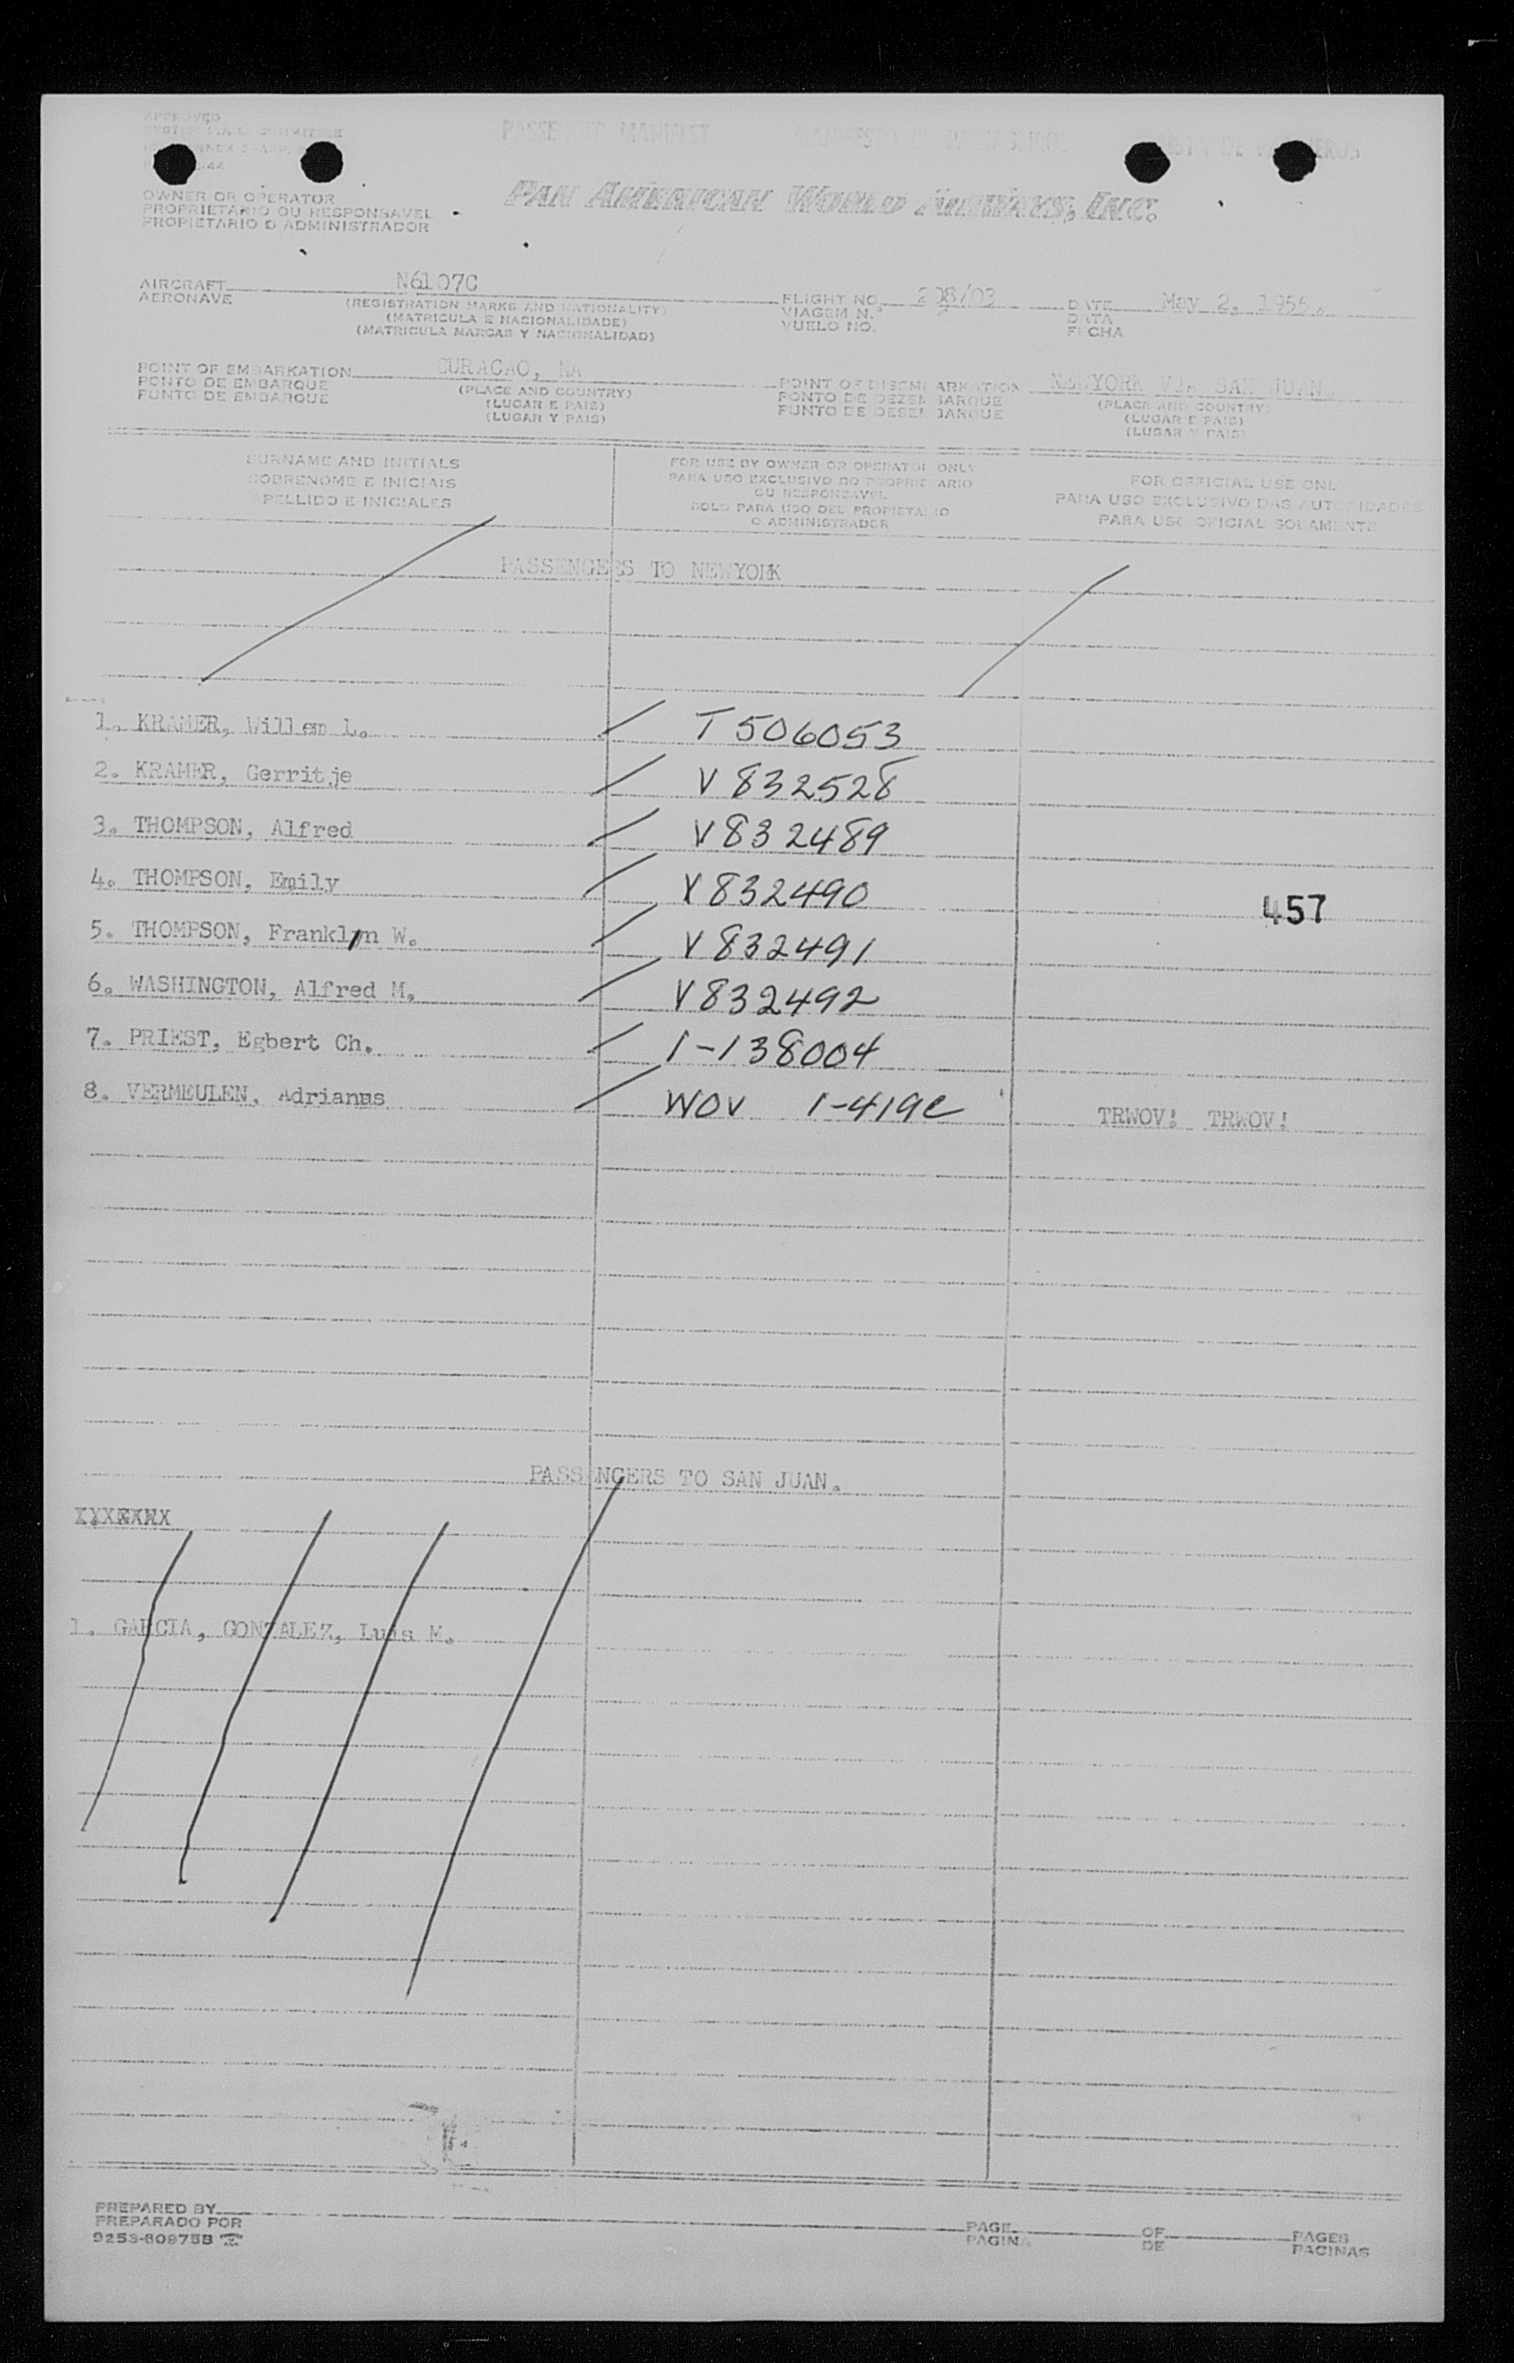 APPROVED
PASSENGER MANIFEST
OWNER OR OPERATOR
PROPRIETARIO OU RESPONSAVEL
PROPIETARIO O ADMINISTRADOR
PAN AMERICAN WORLD AIRWAYS, INC.
AIRCRAFT N6107C
AERONAVE
(REGISTRATION MARKS AND NATIONALITY)
(MATRICULA E NACIONALIDADE)
(MATRICULA MARCAS Y NACIONALIDAD)
FLIGHT NO. 208/03
VIAGEM N.°
VUELO NO.
DATE May 2, 1955.
DATA
FECHA
POINT OF EMBARKATION CURACAO, NA
PONTO DE EMBARQUE
PUNTO DE EMBARQUE
(PLACE AND COUNTRY)
(LUGAR E PAIS)
(LUGAR Y PAIS)
POINT OF DISEMBARKATION NEWYORK VIA SAN JUAN.
PONTO DE DEZEMBARQUE
PUNTO DE DESEMBARQUE
(PLACE AND COUNTRY)
(LUGAR E PAIS)
(LUGAR Y PAIS)
SURNAME AND INITIALS
SOBRENOME E INICIAIS
APELLIDO E INICIALES
FOR USE BY OWNER OR OPERATOR ONLY
PARA USO EXCLUSIVO DO PROPRIETARIO
OU RESPONSAVEL
SOLO PARA USO DEL PROPIETARIO
O ADMINISTRADOR
FOR OFFICIAL USE ONLY
PARA USO EXCLUSIVO DAS AUTORIDADES
PARA USO OFICIAL SOLAMENTE
PASSENGERS TO NEWYORK
1. KRAMER, Willem L. T506053
2. KRAMER, Gerritje V832528
3. THOMPSON, Alfred V832489
4. THOMPSON, Emily V832490
457
5. THOMPSON, Franklyn W. V832491
6. WASHINGTON, Alfred M. V832492
7. PRIEST, Egbert Ch. 1-138004
8. VERMEULEN, Adrianus WOV 1-419c TRWOV! TRWOV!
PASSENGERS TO SAN JUAN.
1. GARCIA, GONZALEZ, Luis M.
PREPARED BY
PREPARADO POR
9253-609758
PAGE OF PAGES
PAGINA DE PAGINAS